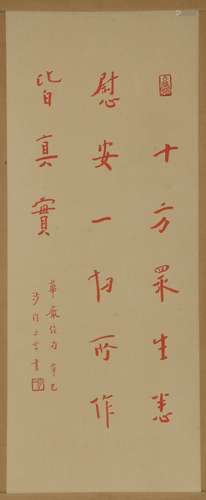 十方眾生悉
慰安一切所作
皆真實
華嚴經句 辛巳